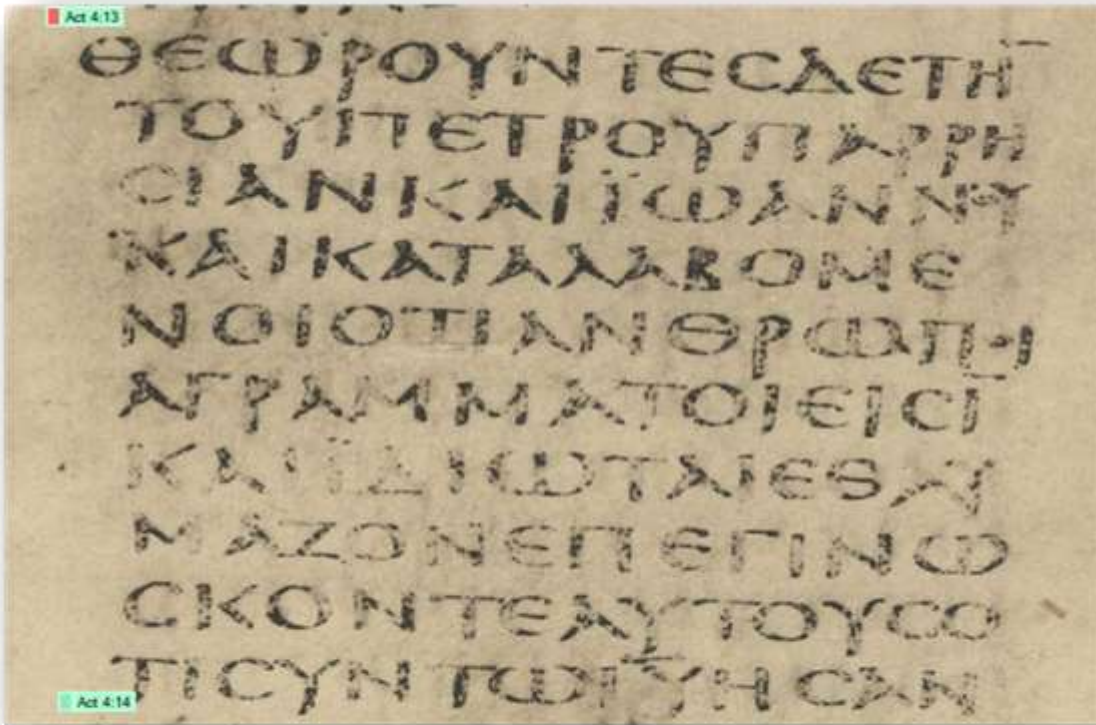 Act 4:13
ΘΕΩΡΟΥΝΤΕϹΔΕΤΗ̅
ΤΟΥΠΕΤΡΟΥΠΑΡΡΗ
ϹΙΑΝΚΑΙΪΩΑΝΝΟΥ
ΚΑΙΚΑΤΑΛΑΒΟΜΕ
ΝΟΙΟΤΙΑΝΘΡΩΠΟΙ
ΑΓΡΑΜΜΑΤΟΙΕΙϹΙ̅
ΚΑΙΪΔΙΩΤΑΙΕΘΑΥ
ΜΑΖΟΝΕΠΕΓΙΝΩ
ϹΚΟΝΤΕΑΥΤΟΥϹΟ
ΤΙϹΥΝΤΩΙ̅Υ̅ΗϹΑΝ
Act 4:14